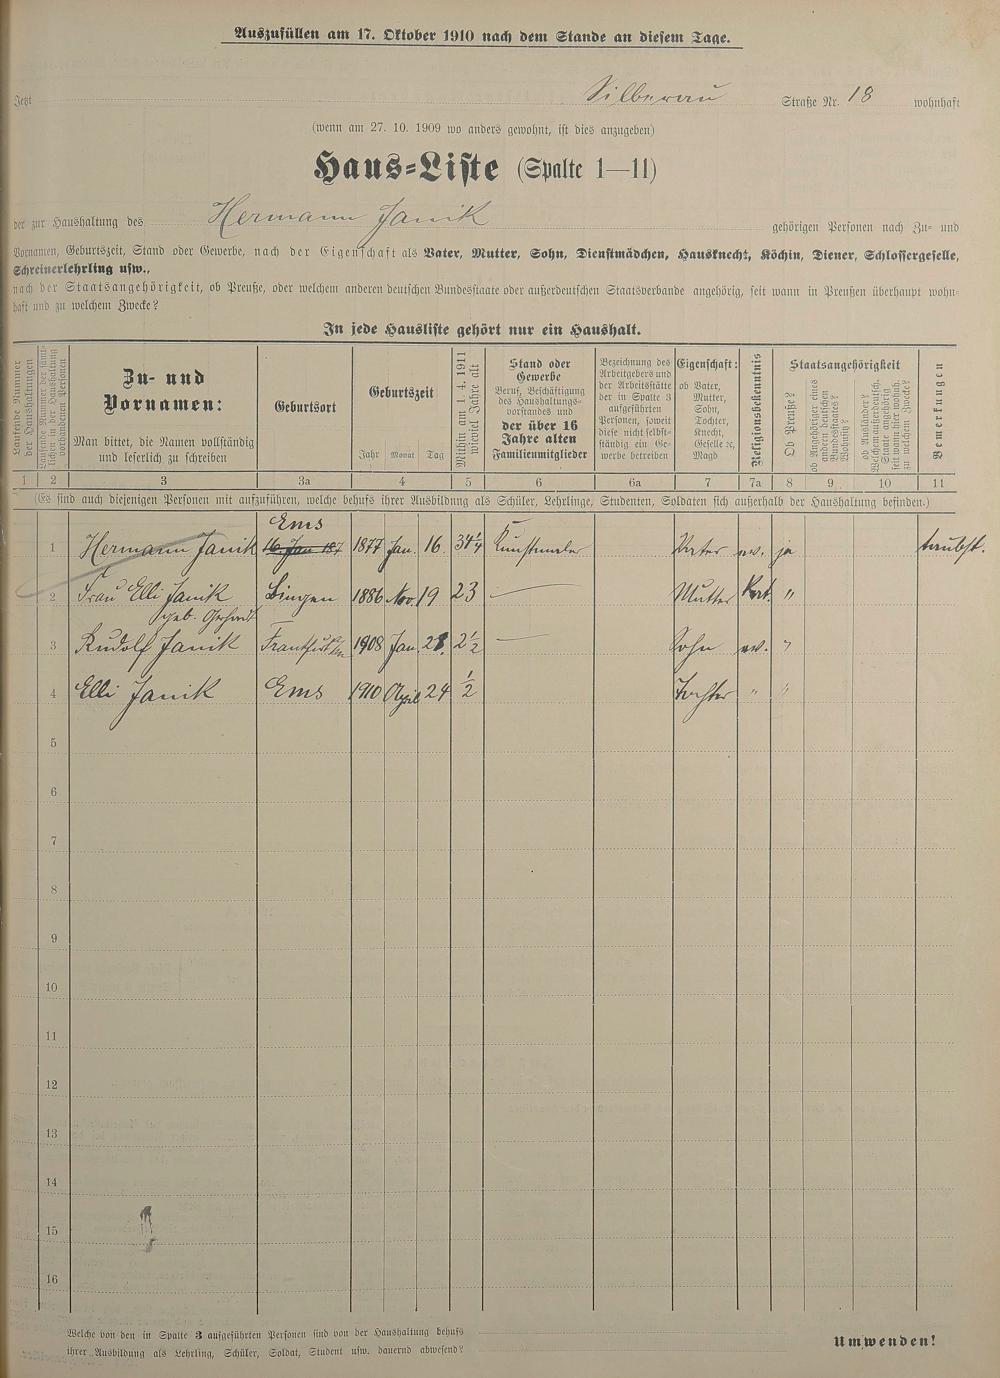 Auszufüllen am 17. Oktober 1910 nach dem Stande an diesem Tage.
Jetzt Silberau Straße Nr. 18 wohnhaft
(wenn am 27. 10. 1909 wo anders gewohnt, ist dies anzugeben)
Haus-Liste (Spalte 1—11)
der zur Haushaltung des Hermann Janik gehörigen Personen nach Zu- und
Vornamen, Geburtszeit, Stand oder Gewerbe, nach der Eigenschaft als Vater, Mutter, Sohn, Dienstmädchen, Hausknecht, Köchin, Diener, Schlossergeselle,
Schreinerlehrling usw.,
nach der Staatsangehörigkeit, ob Preuße, oder welchem anderen deutschen Bundesstaate oder außerdeutschen Staatsverbande angehörig, seit wann in Preußen überhaupt wohn-
haft und zu welchem Zwecke?
In jede Hausliste gehört nur ein Haushalt.
Laufende Nummer
der Haushaltungen
Laufende Nummer der sämt-
lichen in der Haushaltung
vorhandenen Personen
Zu- und
Vornamen:
Man bittet, die Namen vollständig
und leserlich zu schreiben
Geburtsort
Geburtszeit
Jahr Monat Tag
Mithin am 1. 4. 1911
wieviel Jahre alt
Stand oder
Gewerbe
Beruf, Beschäftigung
des Haushaltungs-
vorstandes und
der über 16
Jahre alten
Familienmitglieder
Bezeichnung des
Arbeitgebers und
der Arbeitsstätte
der in Spalte 3
aufgeführten
Personen, soweit
diese nicht selbst-
ständig ein Ge-
werbe betreiben
Eigenschaft:
ob Vater,
Mutter,
Sohn,
Tochter,
Knecht,
Geselle ꝛc,
Magd
Religionsbekenntnis
Staatsangehörigkeit
Ob Preuße?
ob Angehöriger eines
andern deutschen
Bundesstaates?
Wohnsitz?
ob Ausländer?
Welchem außerdeutsch.
Staate angehörig
seit wann hier wohnh.
zu welchem Zwecke?
Bemerkungen
1 2 3 3a 4 5 6 6a 7 7a 8 9 10 11
(Es sind auch diejenigen Personen mit aufzuführen, welche behufs ihrer Ausbildung als Schüler, Lehrlinge, Studenten, Soldaten sich außerhalb der Haushaltung befinden.)
Ems
1 Hermann Janik 16. Jan 187 1877 Jan. 16. 34¼ Kunstmaler Vater ev. ja taubst.
2 Frau Elli Janik Bingen 1886 Nov 19 23 — Mutter Kat. "
geb. Gerhardt
3 Rudolf Janik Frankfurt a/m 1908 Jan. 28. 2½ — Sohn ev. "
4 Elli Janik Ems 1910 April 24 ½ Tochter " "
5
6
7
8
9
10
11
12
13
14
15
16
Welche von den in Spalte 3 aufgeführten Personen sind von der Haushaltung behufs
ihrer Ausbildung als Lehrling, Schüler, Soldat, Student usw. dauernd abwesend?
Umwenden!